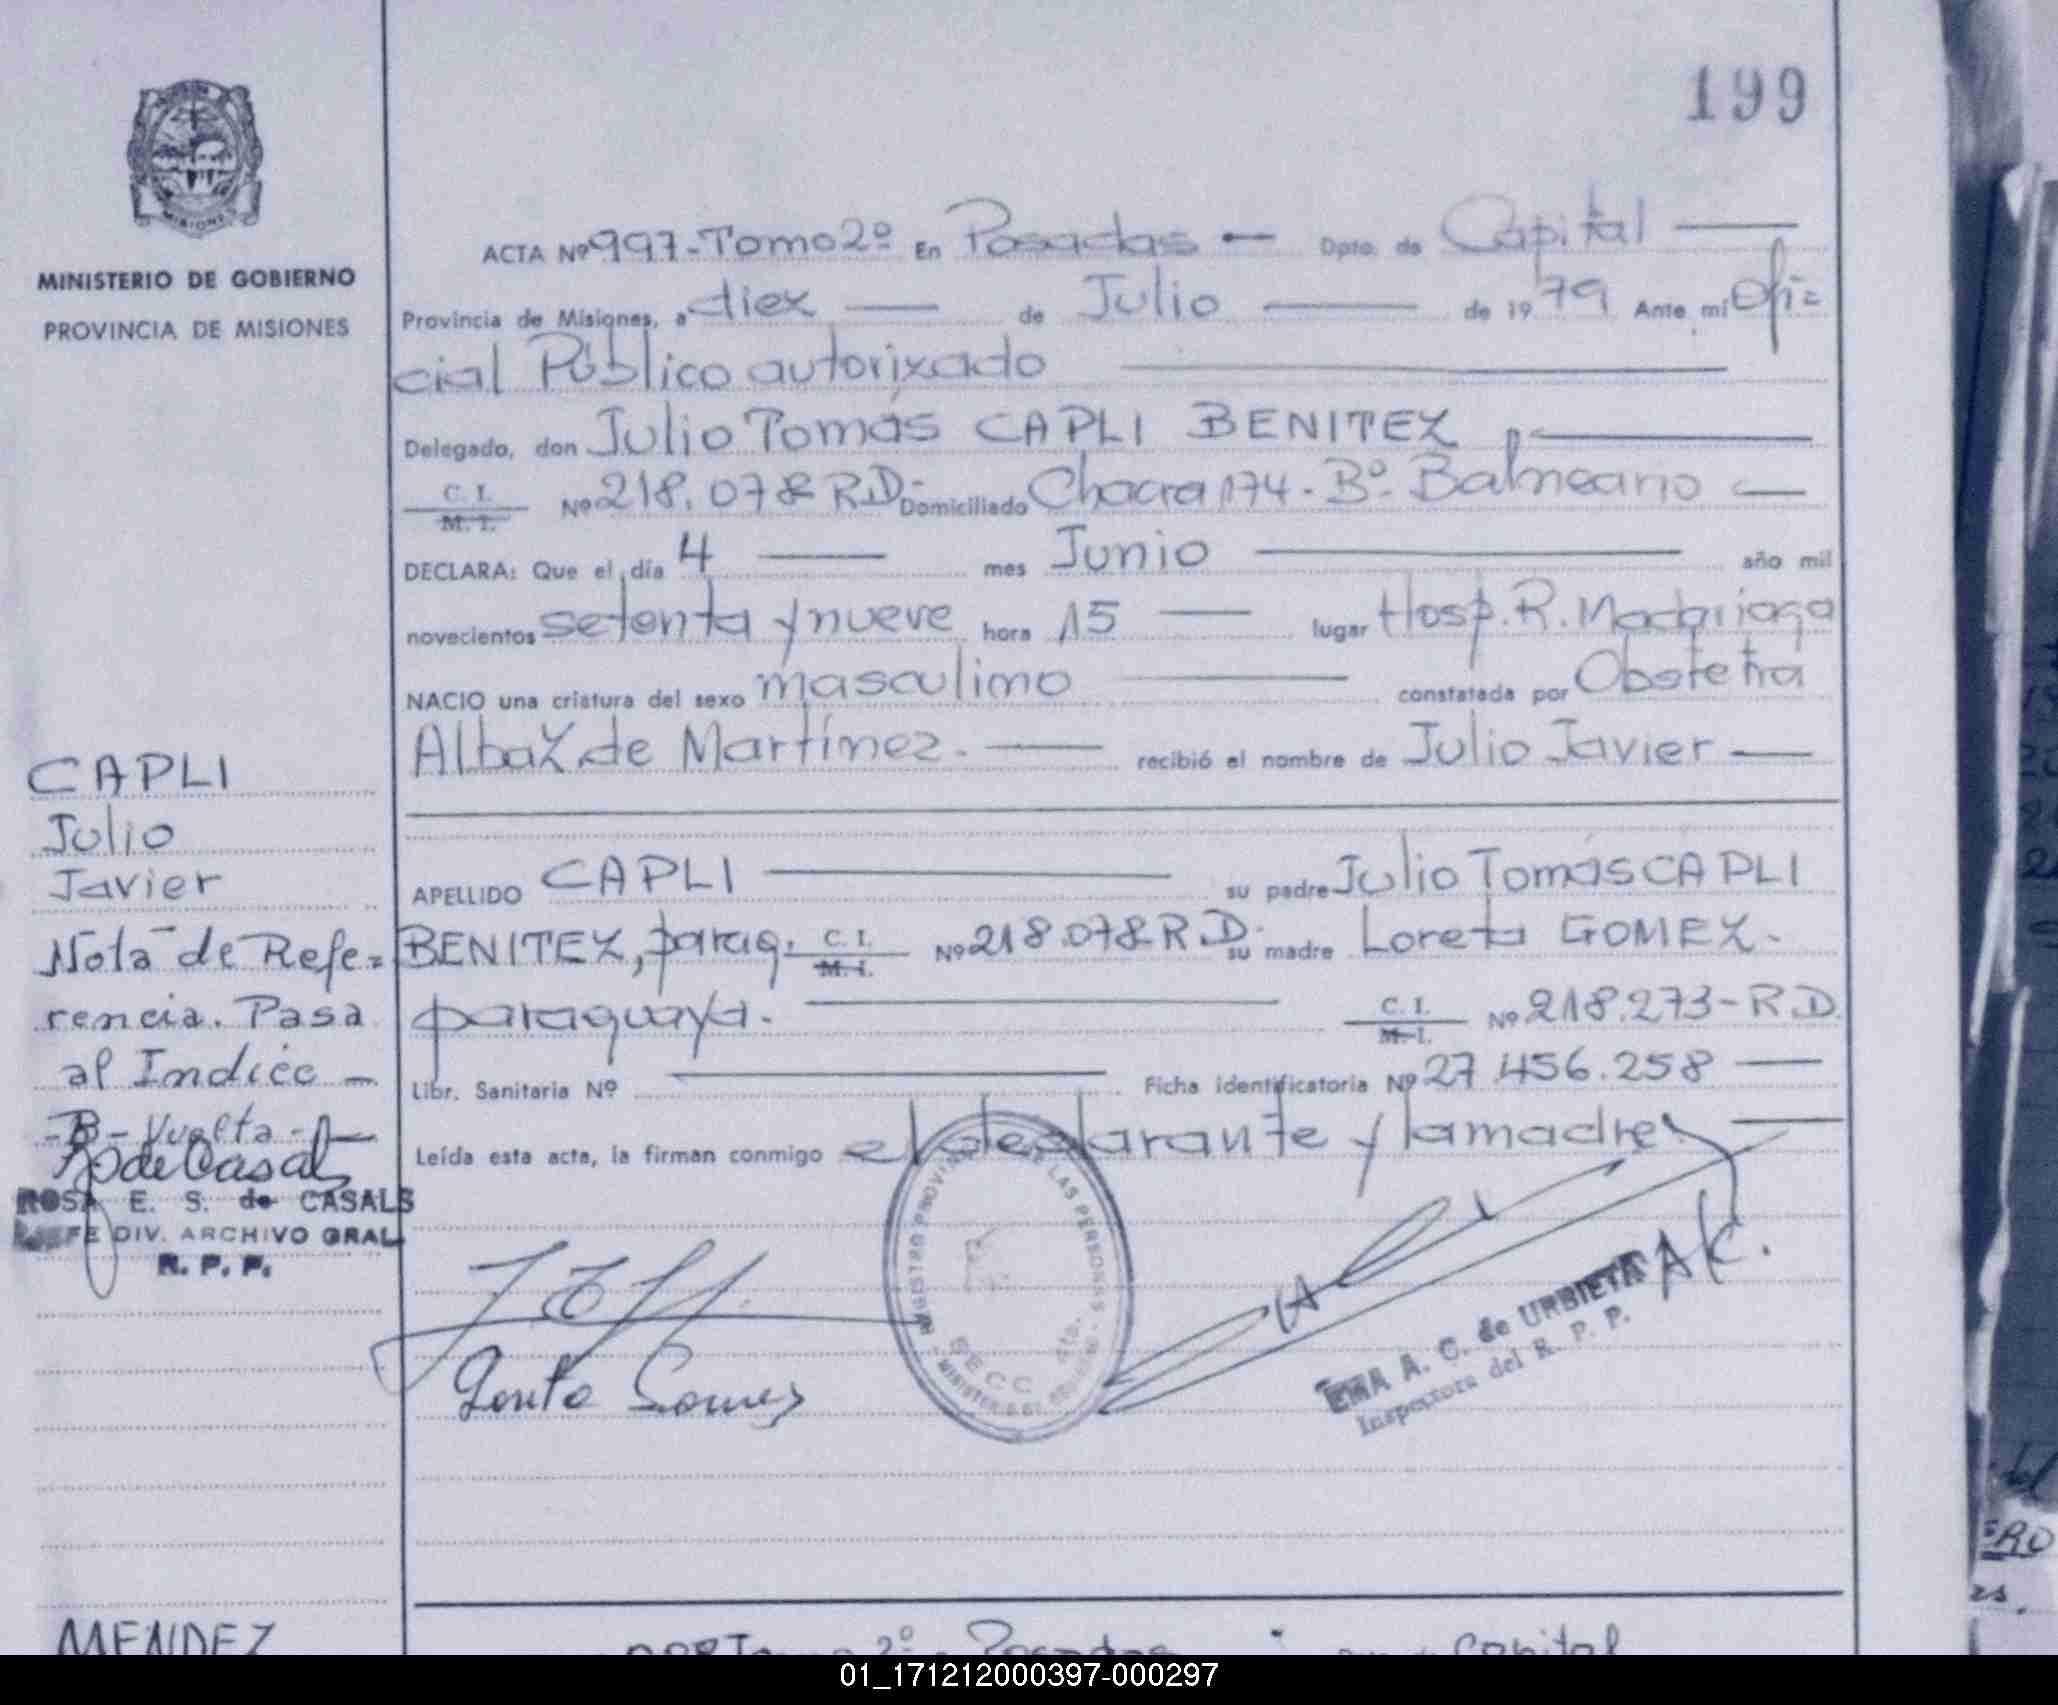 199
MINISTERIO DE GOBIERNO
PROVINCIA DE MISIONES
ACTA Nº 997-Tomo 2º En Posadas — Dpto. de Capital —
Provincia de Misiones, a diez — de Julio — de 1979 Ante mi Ofi=
cial Público autorizado
Delegado, don Julio Tomás CAPLI BENITEZ
C. I. M. I. Nº 218.078 R.D. Domiciliado Chacra 174 - Bº. Balneario —
DECLARA: Que el día 4 — mes Junio — año mil
novecientos setenta y nueve hora 15 — lugar Hosp. R. Madariaga
NACIO una criatura del sexo masculino — constatada por Obstetra
Alba Z. de Martínez. — recibió el nombre de Julio Javier —
APELLIDO CAPLI — su padre Julio Tomás CAPLI
BENITEZ, parag. C. I. M. I. Nº 218.078 R.D. su madre Loreta GOMEZ -
paraguaya. — C. I. M. I. Nº 218.273-R.D.
Libr. Sanitaria Nº — Ficha identificatoria Nº 27.456.258 —
Leída esta acta, la firman conmigo el declarante y la madre —
CAPLI
Julio
Javier
Nota de Refe=
rencia. Pasa
al Indice —
- B - Vuelta -
R. de Casals
ROSA E. S. de CASALS
JEFE DIV. ARCHIVO GRAL.
R. P. P.
REGISTRO PROVINCIAL DE LAS PERSONAS
SECC
Loreta Gomez
EMA A. C. de URBIETA
Inspectora del R. P. P.
MENDEZ
Tomo 2º Posadas Capital
01_171212000397-000297